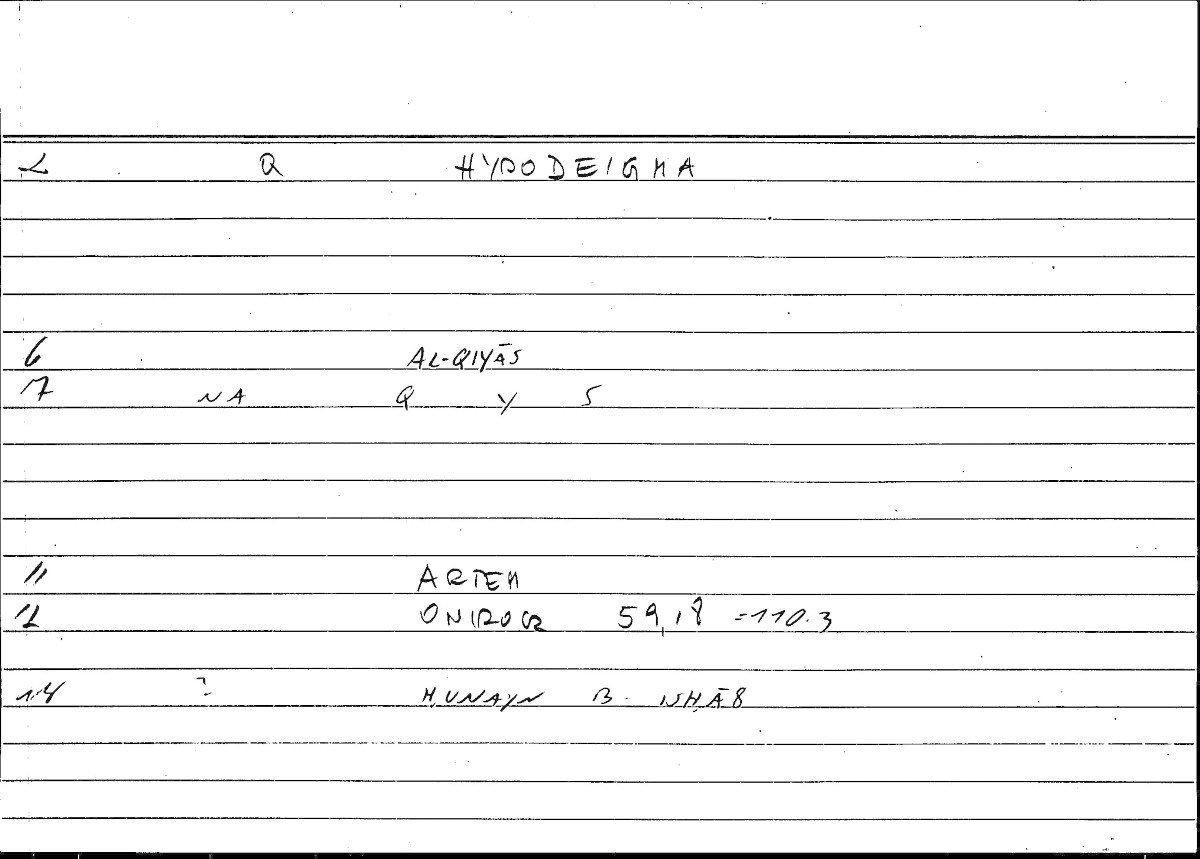 2 Q HYPODEIGMA
6 AL-QIYĀS
7 NA Q Y S
11 ARTEM
12 ONIROCR 59,18 =110.3
14 ? ḤUNAYN B. ISḤĀQ